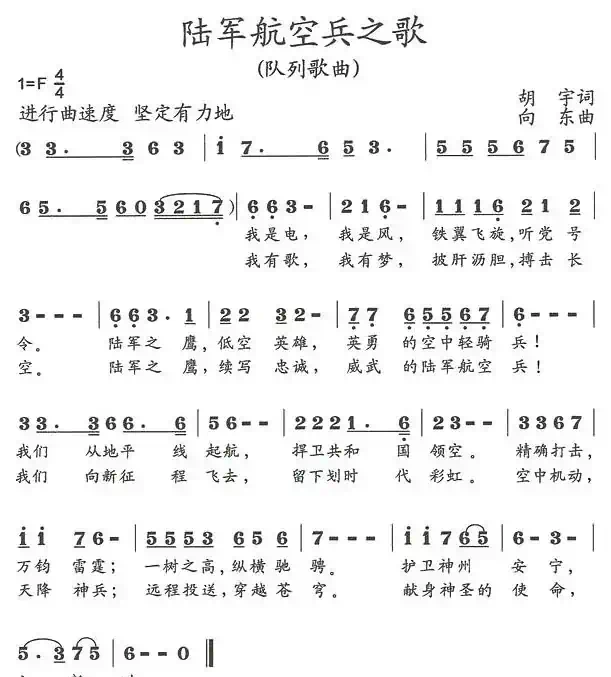 陆军航空兵之歌
(队列歌曲)
1=F 4/4
进行曲速度 坚定有力地
胡 宇词
向 东曲
(3 3. 3 6 3 | i 7. 6 5 3. | 5 5 5 6 7 5 |
6 5. 5 6 0 3 2 1 7) | 6 6 3 - | 2 1 6 - | 1 1 1 6 2 1 2 |
我是电, 我是风, 铁翼飞旋,听党 号
我有歌, 我有梦, 披肝沥胆,搏击 长
3 - - - | 6 6 3. 1 | 2 2 3 2 - | 7 7 6 5 5 6 7 | 6 - - - |
令。 陆军之 鹰,低空 英雄, 英勇 的空中轻骑 兵!
空。 陆军之 鹰,续写 忠诚, 威武 的陆军航空 兵!
3 3. 3 6 6. 6 | 5 6 - - | 2 2 2 1. 6 | 2 3 - - | 3 3 6 7 |
我们 从地平 线 起航, 捍卫共和 国 领空。 精确打击,
我们 向新征 程 飞去, 留下划时 代 彩虹。 空中机动,
i i 7 6 - | 5 5 5 3 6 5 6 | 7 - - - | i i 7 6 5 | 6 - 3 - |
万钧 雷霆; 一树之高,纵横驰 骋。 护卫神州 安 宁,
天降 神兵; 远程投送,穿越苍 穹。 献身神圣的 使 命,
5. 3 7 5 | 6 - - 0 ‖